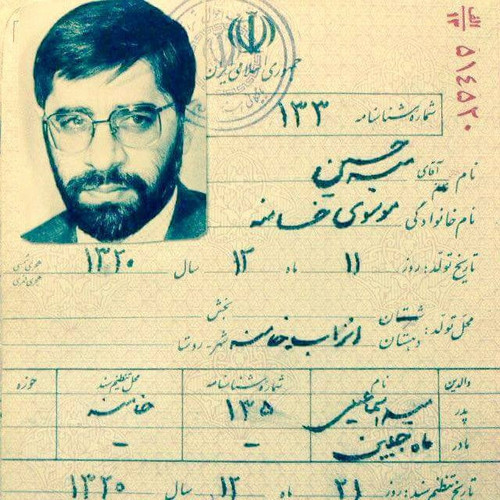 الف
۱۳
۵۱۴۵۲۰
جمهوری اسلامی ایران
شماره شناسنامه ۱۳۳
نام آقای میرحسین
نام خانوادگی موسوی خامنه
تاریخ تولد: روز ۱۱ ماه ۱۲ سال ۱۳۲۰ هجری شمسی
هجری قمری
محل تولد: شهرستان بخش
دهستان انزاب خامنه شهر - روستا
والدین نام شماره شناسنامه محل تنظیم سند حوزه
پدر میر اسماعیل ۱۳۵ خامنه
مادر ماه جبین - -
تاریخ تنظیم سند: روز ۲۱ ماه ۱۲ سال ۱۳۲۰